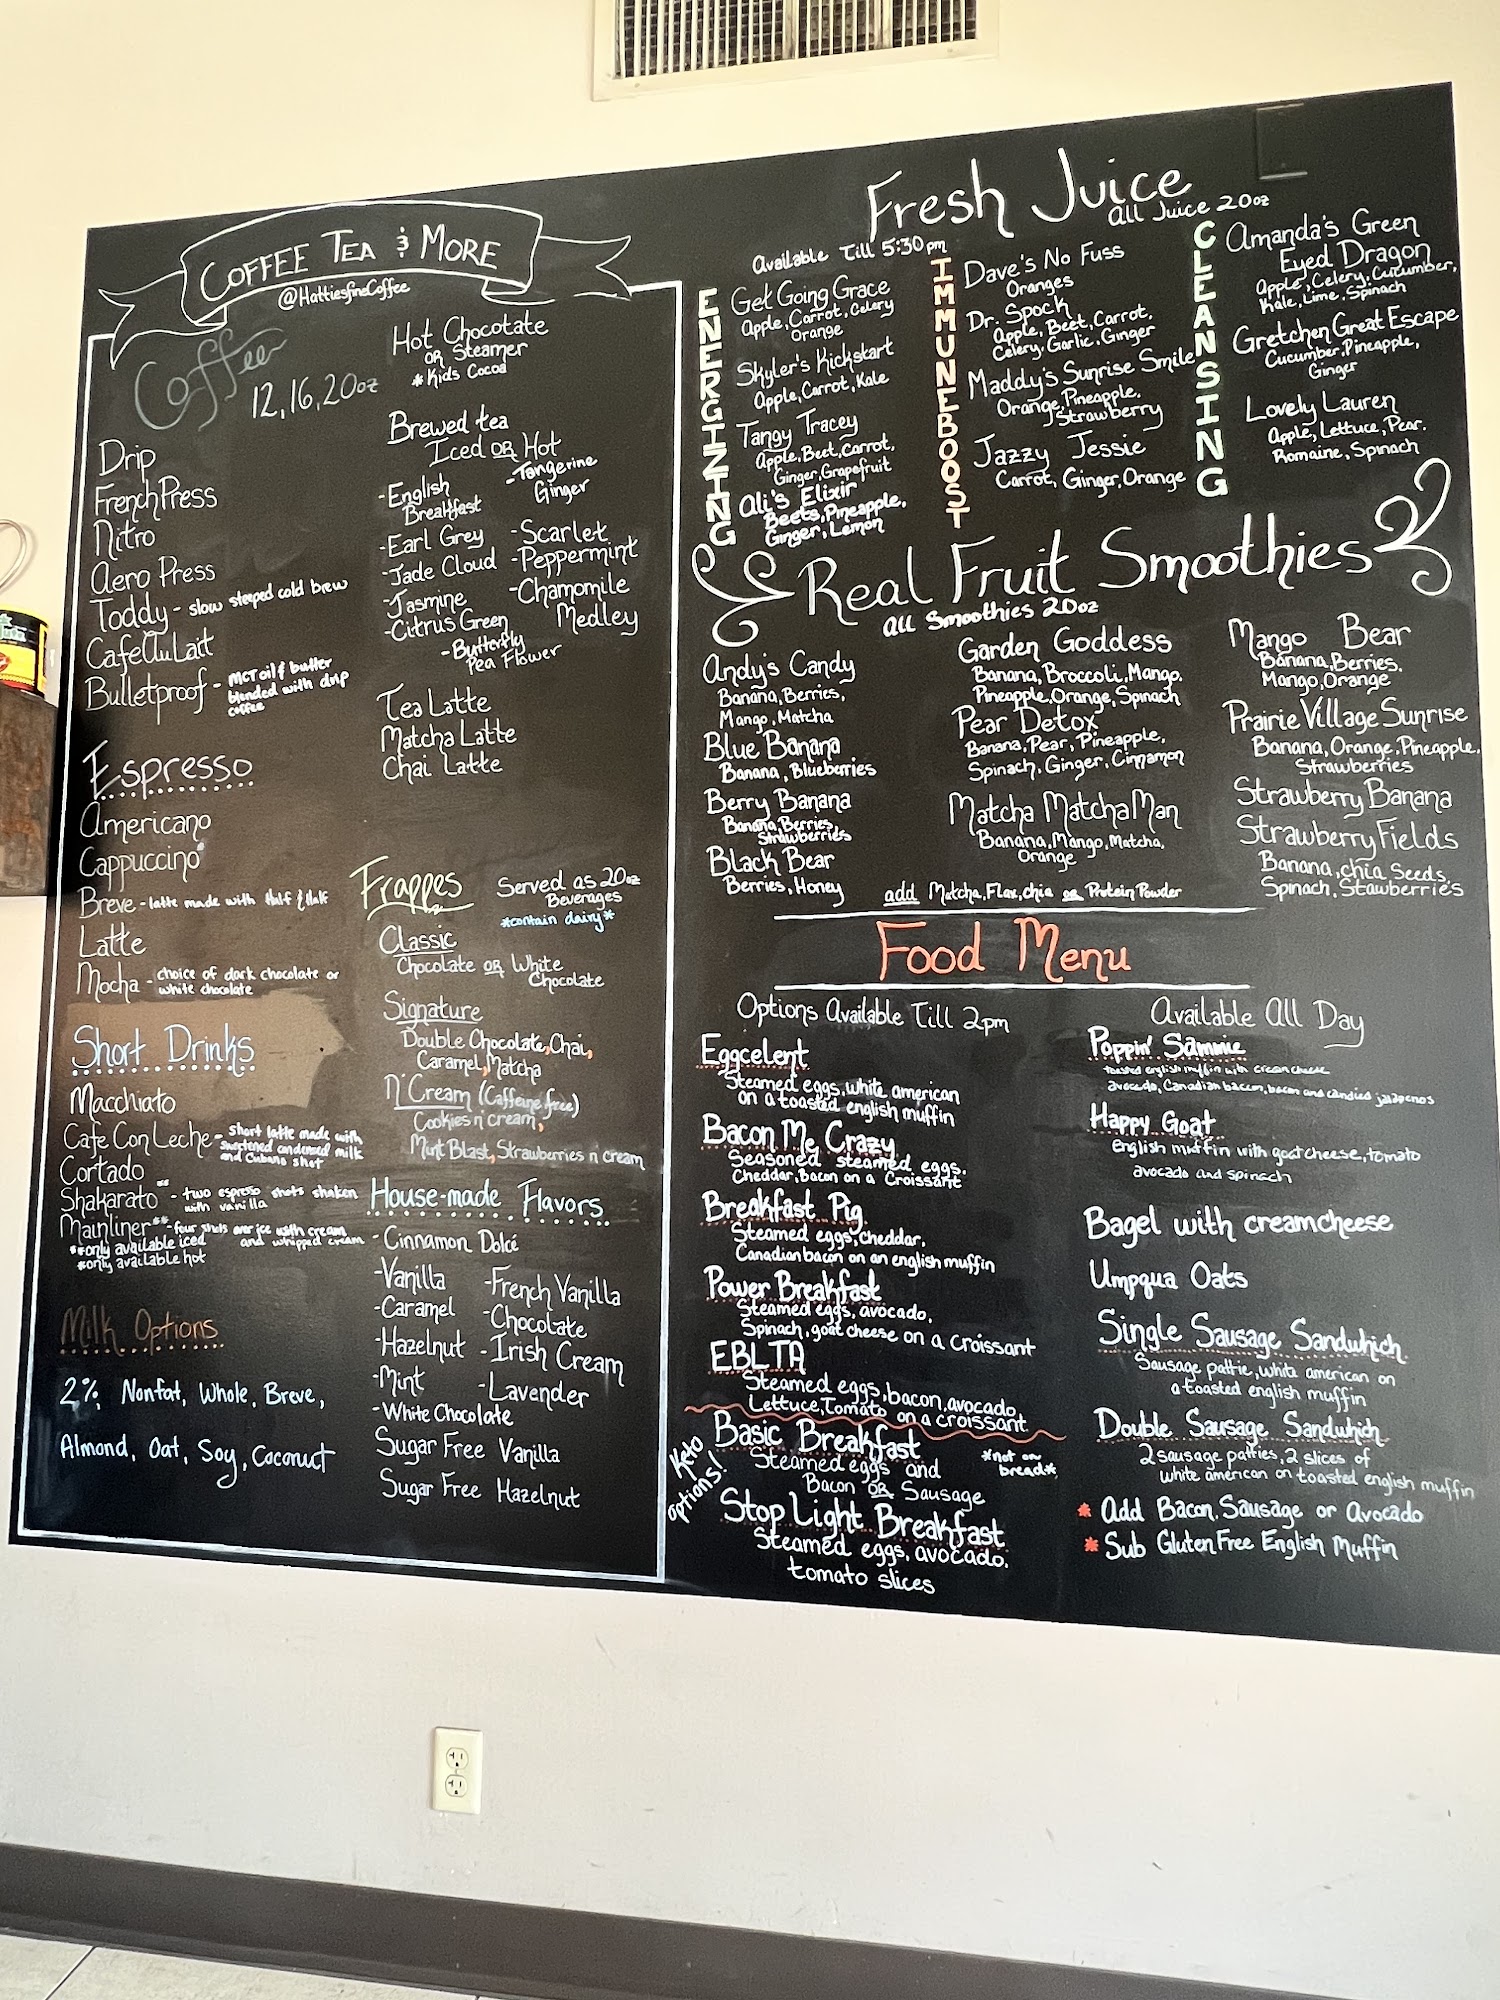 COFFEE TEA & MORE
@HattiesfineCoffee
Coffee
12, 16, 20oz
Drip
French Press
Nitro
Aero Press
Toddy - slow steeped cold brew
Cafe Au Lait
Bulletproof - MCT oil & butter
blended with drip
coffee
Espresso
Americano
Cappuccino*
Breve - latte made with Half & Half
Latte
Mocha - choice of dark chocolate or
white chocolate
Short Drinks
Macchiato
Cafe Con Leche - short latte made with
sweetened condensed milk
and Cubano shot
Cortado
Shakarato** - two espresso shots shaken
with vanilla
Mainliner** - four shots over ice with cream
and whipped cream
**only available iced
*only available hot
Milk Options
2%, Nonfat, Whole, Breve,
Almond, Oat, Soy, Coconut
Hot Chocolate
OR Steamer
* Kids Cocoa
Brewed tea
Iced OR Hot
- English
Breakfast
- Earl Grey
- Jade Cloud
- Jasmine
- Citrus Green
- Tangerine
Ginger
- Scarlet
- Peppermint
- Chamomile
Medley
- Butterfly
Pea Flower
Tea Latte
Matcha Latte
Chai Latte
Frappes
Served as 20oz
Beverages
*contain dairy*
Classic
Chocolate OR White
Chocolate
Signature
Double Chocolate, Chai,
Caramel, Matcha
N' Cream (Caffeine free)
Cookies n' cream,
Mint Blast, Strawberries n cream
House-made Flavors
- Cinnamon Dolcé
- Vanilla
- Caramel
- Hazelnut
- Mint
- White Chocolate
- French Vanilla
- Chocolate
- Irish Cream
- Lavender
Sugar Free Vanilla
Sugar Free Hazelnut
Fresh Juice
All Juice 20oz
Available Till 5:30pm
ENERGIZING
Get Going Grace
Apple, Carrot, Celery
Orange
Skyler's Kickstart
Apple, Carrot, Kale
Tangy Tracey
Apple, Beet, Carrot,
Ginger, Grapefruit
Ali's Elixir
Beets, Pineapple,
Ginger, Lemon
IMMUNEBOOST
Dave's No Fuss
Oranges
Dr. Spock
Apple, Beet, Carrot,
Celery, Garlic, Ginger
Maddy's Sunrise Smile
Orange, Pineapple,
Strawberry
Jazzy Jessie
Carrot, Ginger, Orange
CLEANSING
Amanda's Green
Eyed Dragon
Apple, Celery, Cucumber,
Kale, Lime, Spinach
Gretchen Great Escape
Cucumber, Pineapple,
Ginger
Lovely Lauren
Apple, Lettuce, Pear,
Romaine, Spinach
Real Fruit Smoothies
All Smoothies 20oz
Andy's Candy
Banana, Berries,
Mango, Matcha
Blue Banana
Banana, Blueberries
Berry Banana
Banana, Berries,
Strawberries
Black Bear
Berries, Honey
Garden Goddess
Banana, Broccoli, Mango,
Pineapple, Orange, Spinach
Pear Detox
Banana, Pear, Pineapple,
Spinach, Ginger, Cinnamon
Matcha Matcha Man
Banana, Mango, Matcha,
Orange
Mango Bear
Banana, Berries,
Mango, Orange
Prairie Village Sunrise
Banana, Orange, Pineapple,
Strawberries
Strawberry Banana
Strawberry Fields
Banana, chia Seeds,
Spinach, Stawberries
add Matcha, Flax, chia or Protein Powder
Food Menu
Options Available Till 2pm
Eggcelent
Steamed eggs, white american
on a toasted english muffin
Bacon Me Crazy
Seasoned steamed eggs,
Cheddar, bacon on a Croissant
Breakfast Pig
Steamed eggs, cheddar,
Canadian bacon on an english muffin
Power Breakfast
Steamed eggs, avocado,
Spinach, goat cheese on a croissant
EBLTA
Steamed eggs, bacon, avocado,
Lettuce, Tomato on a croissant
Keto
options!
Basic Breakfast
*not on
bread*
Steamed eggs and
Bacon OR Sausage
Stop Light Breakfast
Steamed eggs, avocado,
tomato slices
Available All Day
Poppin' Sammie
toasted english muffin with cream cheese
avocado, Canadian bacon, bacon and candied jalapenos
Happy Goat
english muffin with goat cheese, tomato
avocado and spinach
Bagel with creamcheese
Umpqua Oats
Single Sausage Sandwhich
Sausage pattie, white american on
a toasted english muffin
Double Sausage Sandwhich
2 sausage patties, 2 slices of
white american on toasted english muffin
* Add Bacon, Sausage or Avocado
* Sub Gluten Free English Muffin